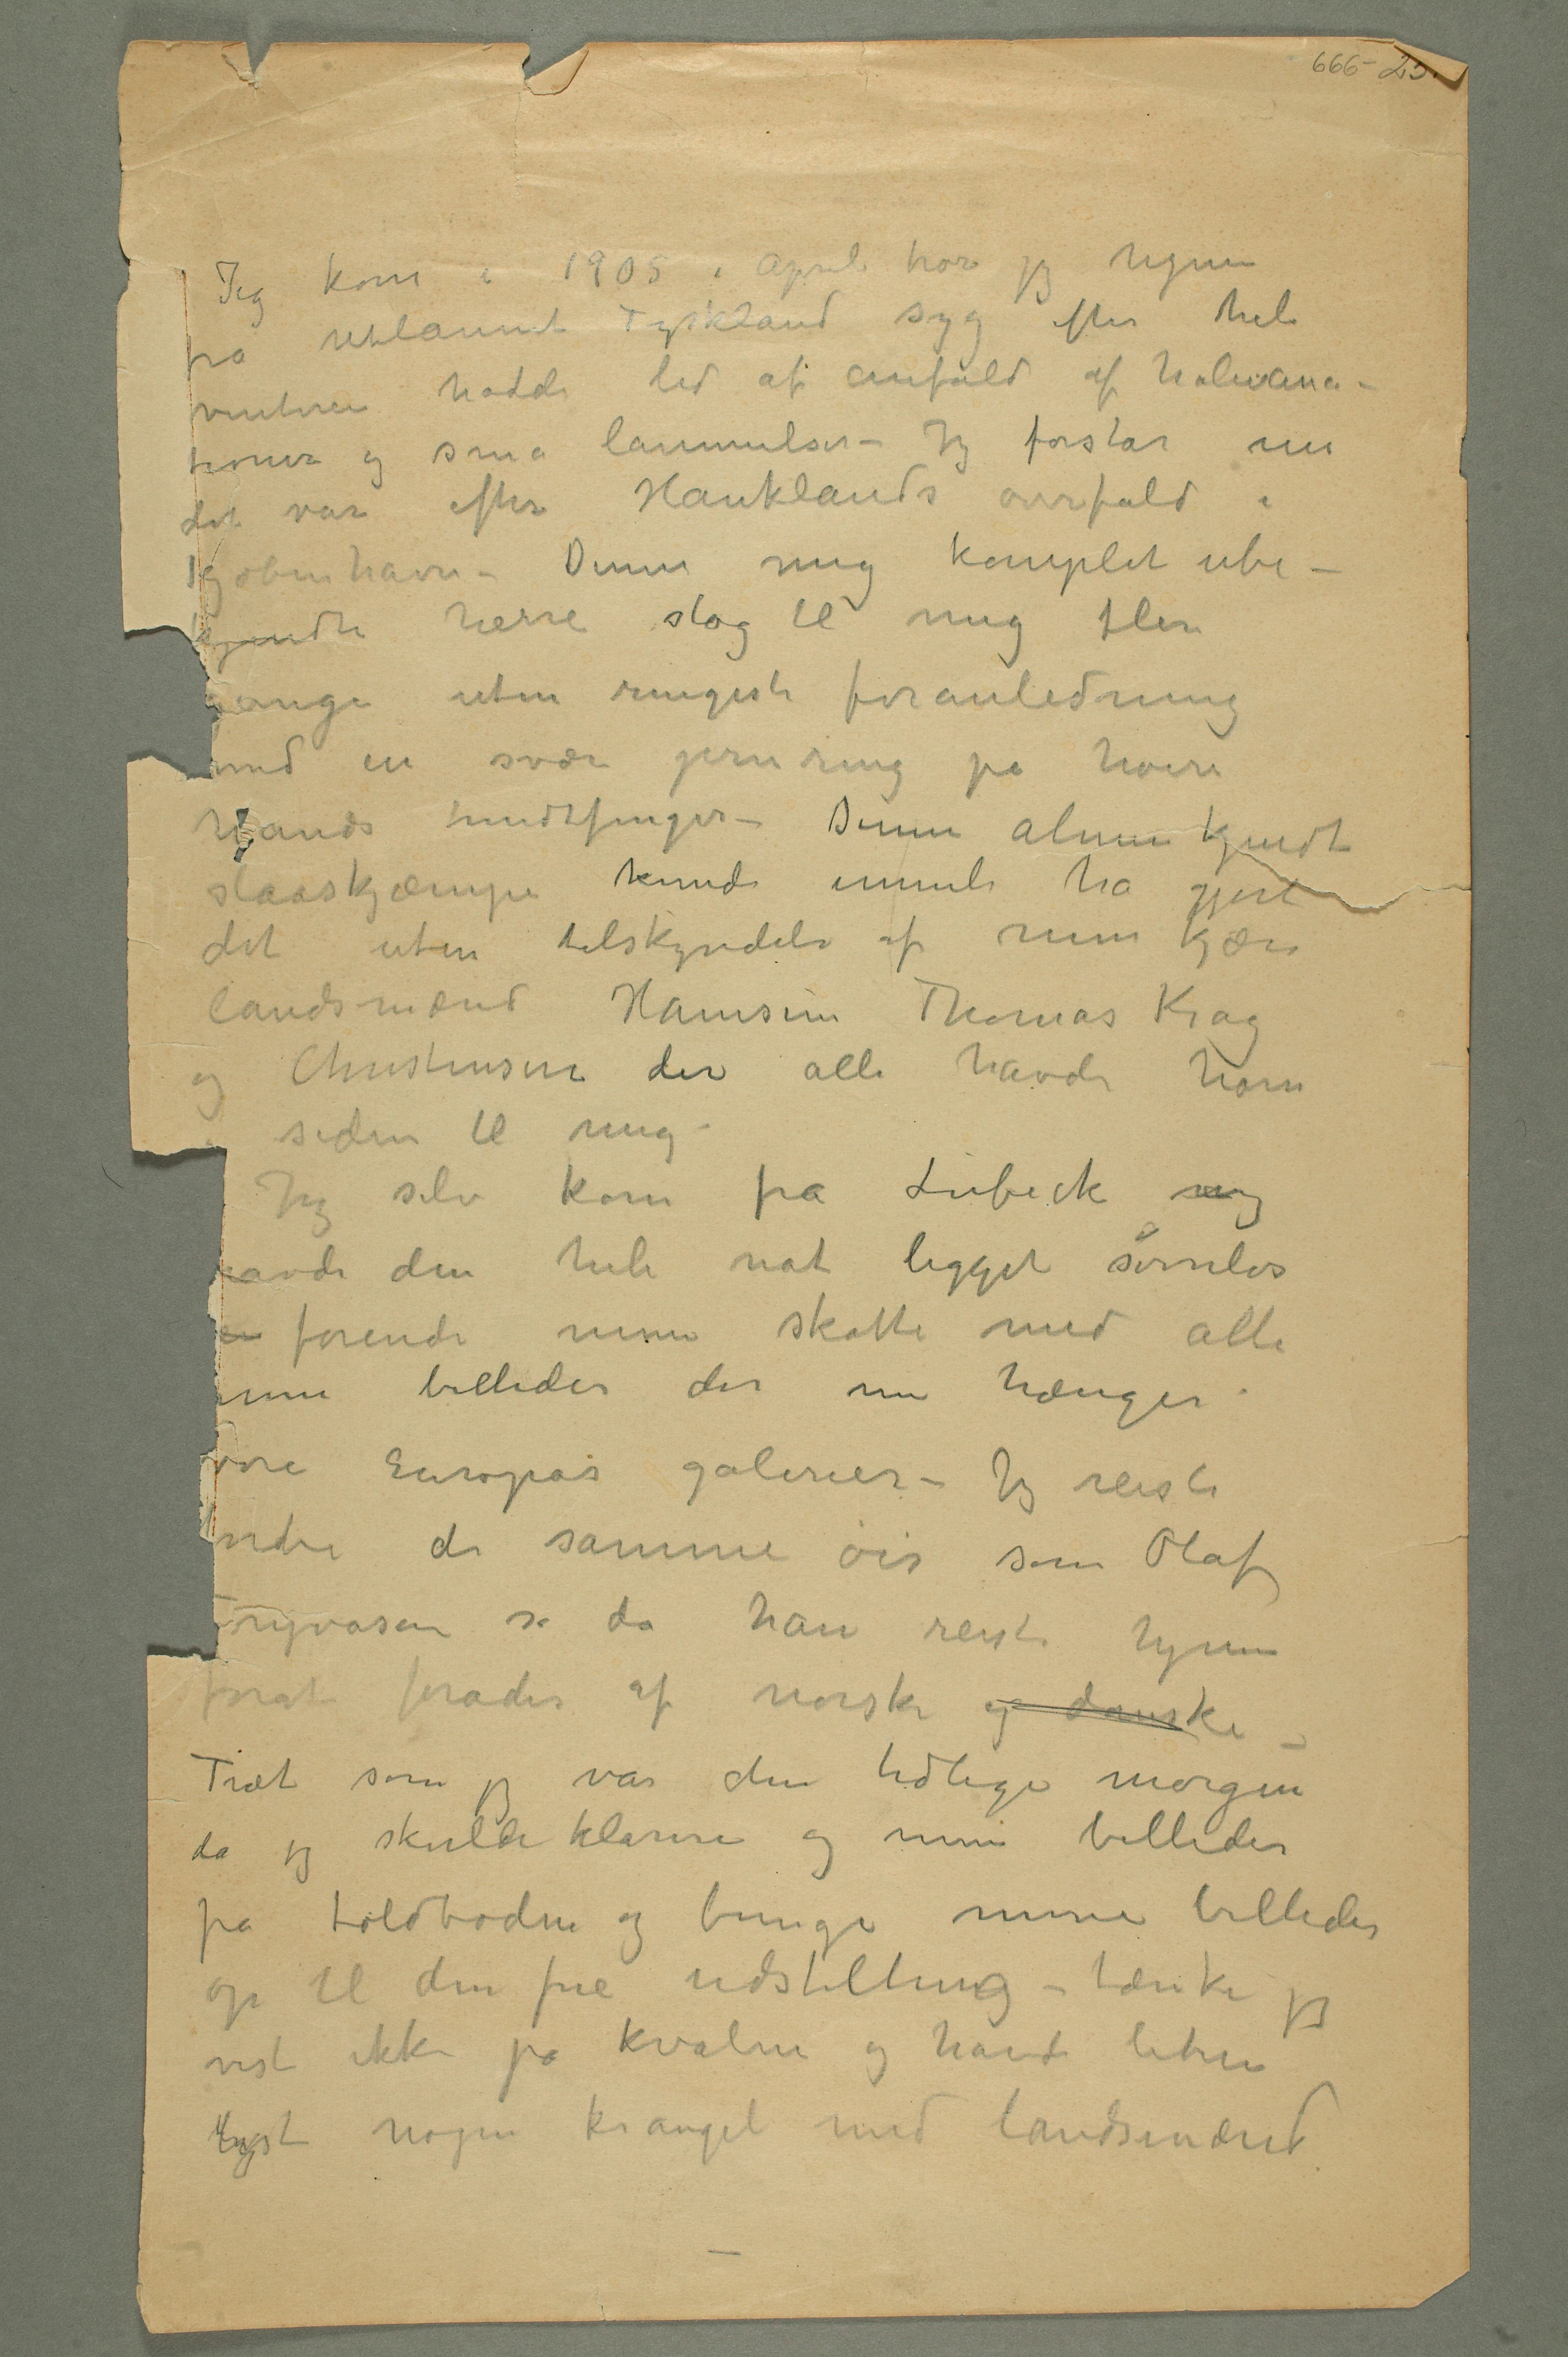 666-25.
Jeg kom i 1905 i April tror jeg hjem
fra utlannet Tyskland syg efter hele
vinteren hadde led af anfald af halucina-
tioner og små lammelser – Jeg forstar nu
det var efter Hauklands overfald i
Kjøbenhavn – Denne mig komplet ube-
kjendte herre slog til mig flere
gange uten ringeste foranledning
med en svær jernring på høire
hånds tredtfinger – Denne almenkjendt
slaaskjæmpe kunde umuli ha gjort
det uten tilskyndelse af mine kjære
landsmænd Hamsun Thomas Krag
og Christensen der alle havde horn
i siden til mig –
Jeg selv kom fra Lübeck og
havde den hele nat ligget søvnløs
førende mine skatte med alle
mine billeder der nu hænger i
vore Europas galerier – Jeg reiste
indre de samme øer som Olaf
Trygvason så da han reiste hjem
forat forådes af norske og danske –
Træt som jeg var den tidlige morgen
da jeg skulde klarere og mine billeder
på toldboden og bringe mine billeder
op til den frie udstilling – tænkte jeg
vist ikke på kvalm og havde liten
lyst nogen krangel med landsmænd